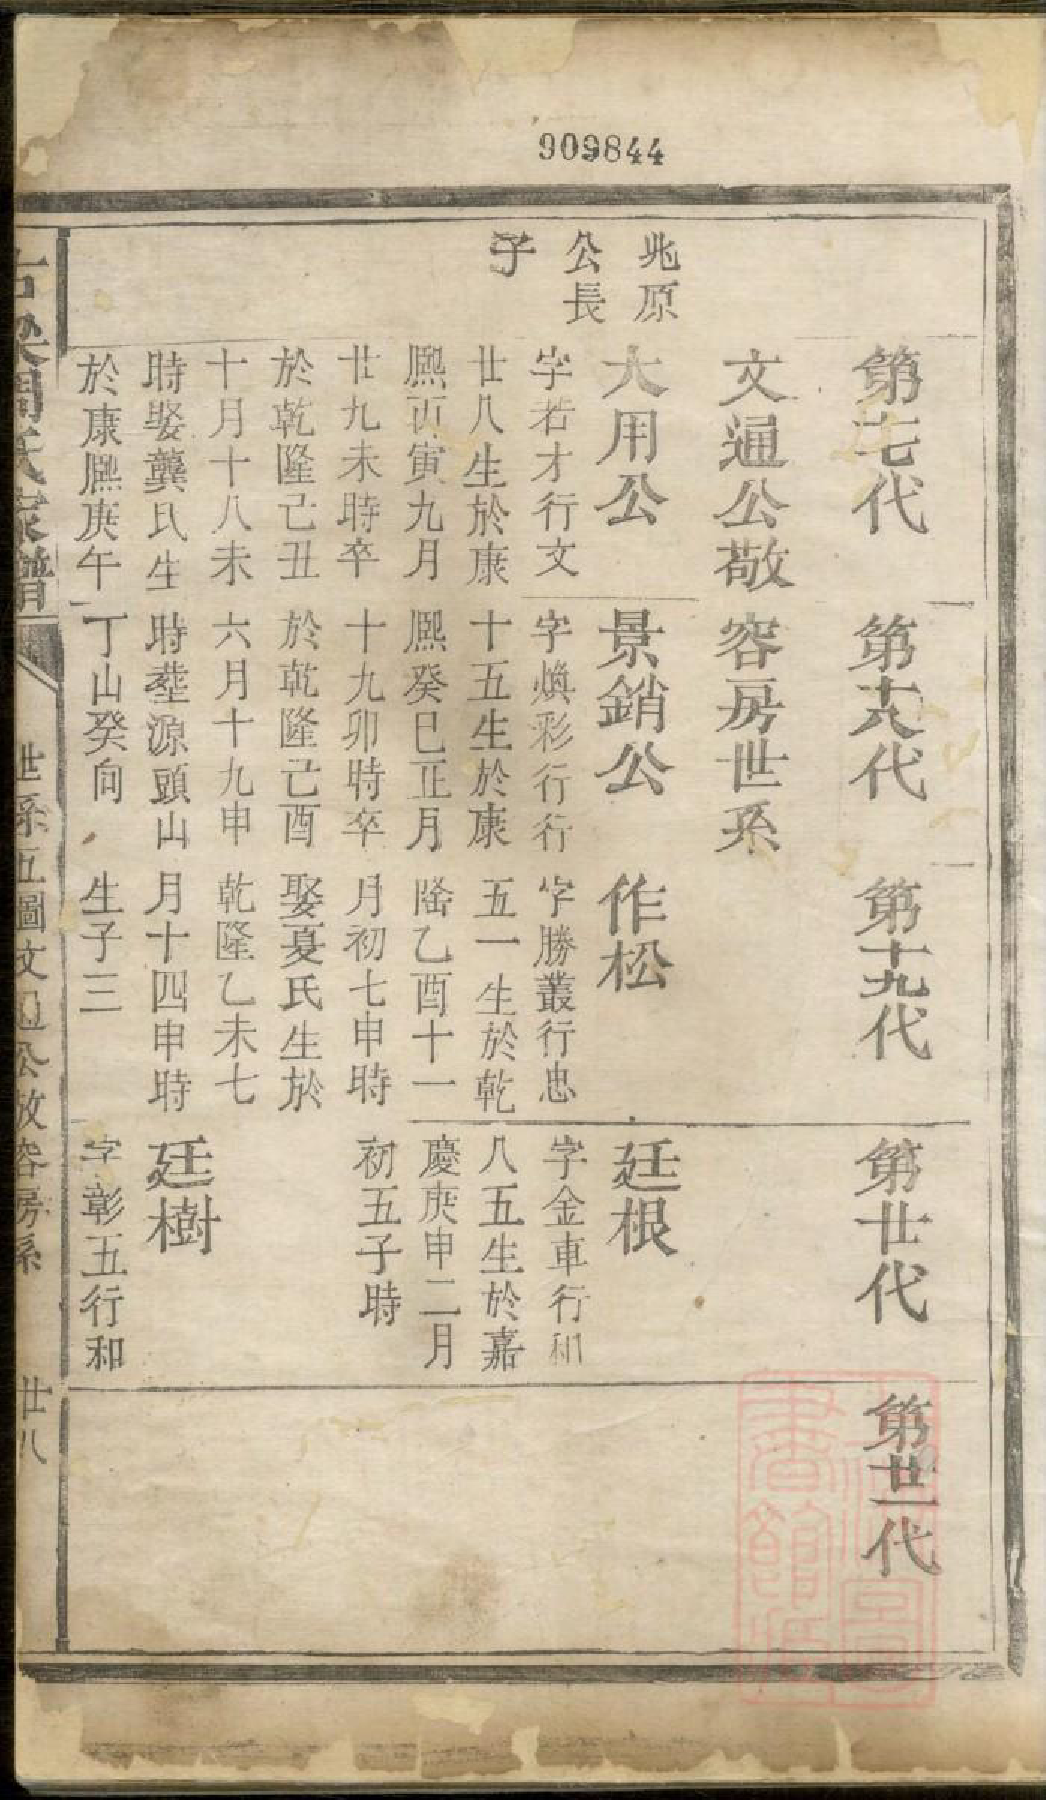 909844
第十七代
第十八代
第十九代
第廿代
第廿一代
文通公敬
容房世系
兆原
公長
子
大用公
字若才行文
廿八生於康
熙丙寅九月
廿九未時卒
於乾隆己丑
十月十八未
時娶龔氏生
於康熙庚午
景銷公
字煥彩行行
十五生於康
熙癸巳正月
十九卯時卒
於乾隆己酉
六月十九申
時塟源頭山
丁山癸向
作松
字勝叢行忠
五一生於乾
隆乙酉十一
月初七申時
娶夏氏生於
乾隆乙未七
月十四申時
生子三
廷根
字金車行和
八五生於嘉
慶庚申二月
初五子時
廷樹
字彰五行和
古梁周氏家譜
世系五圖文通公敬容房系
廿八